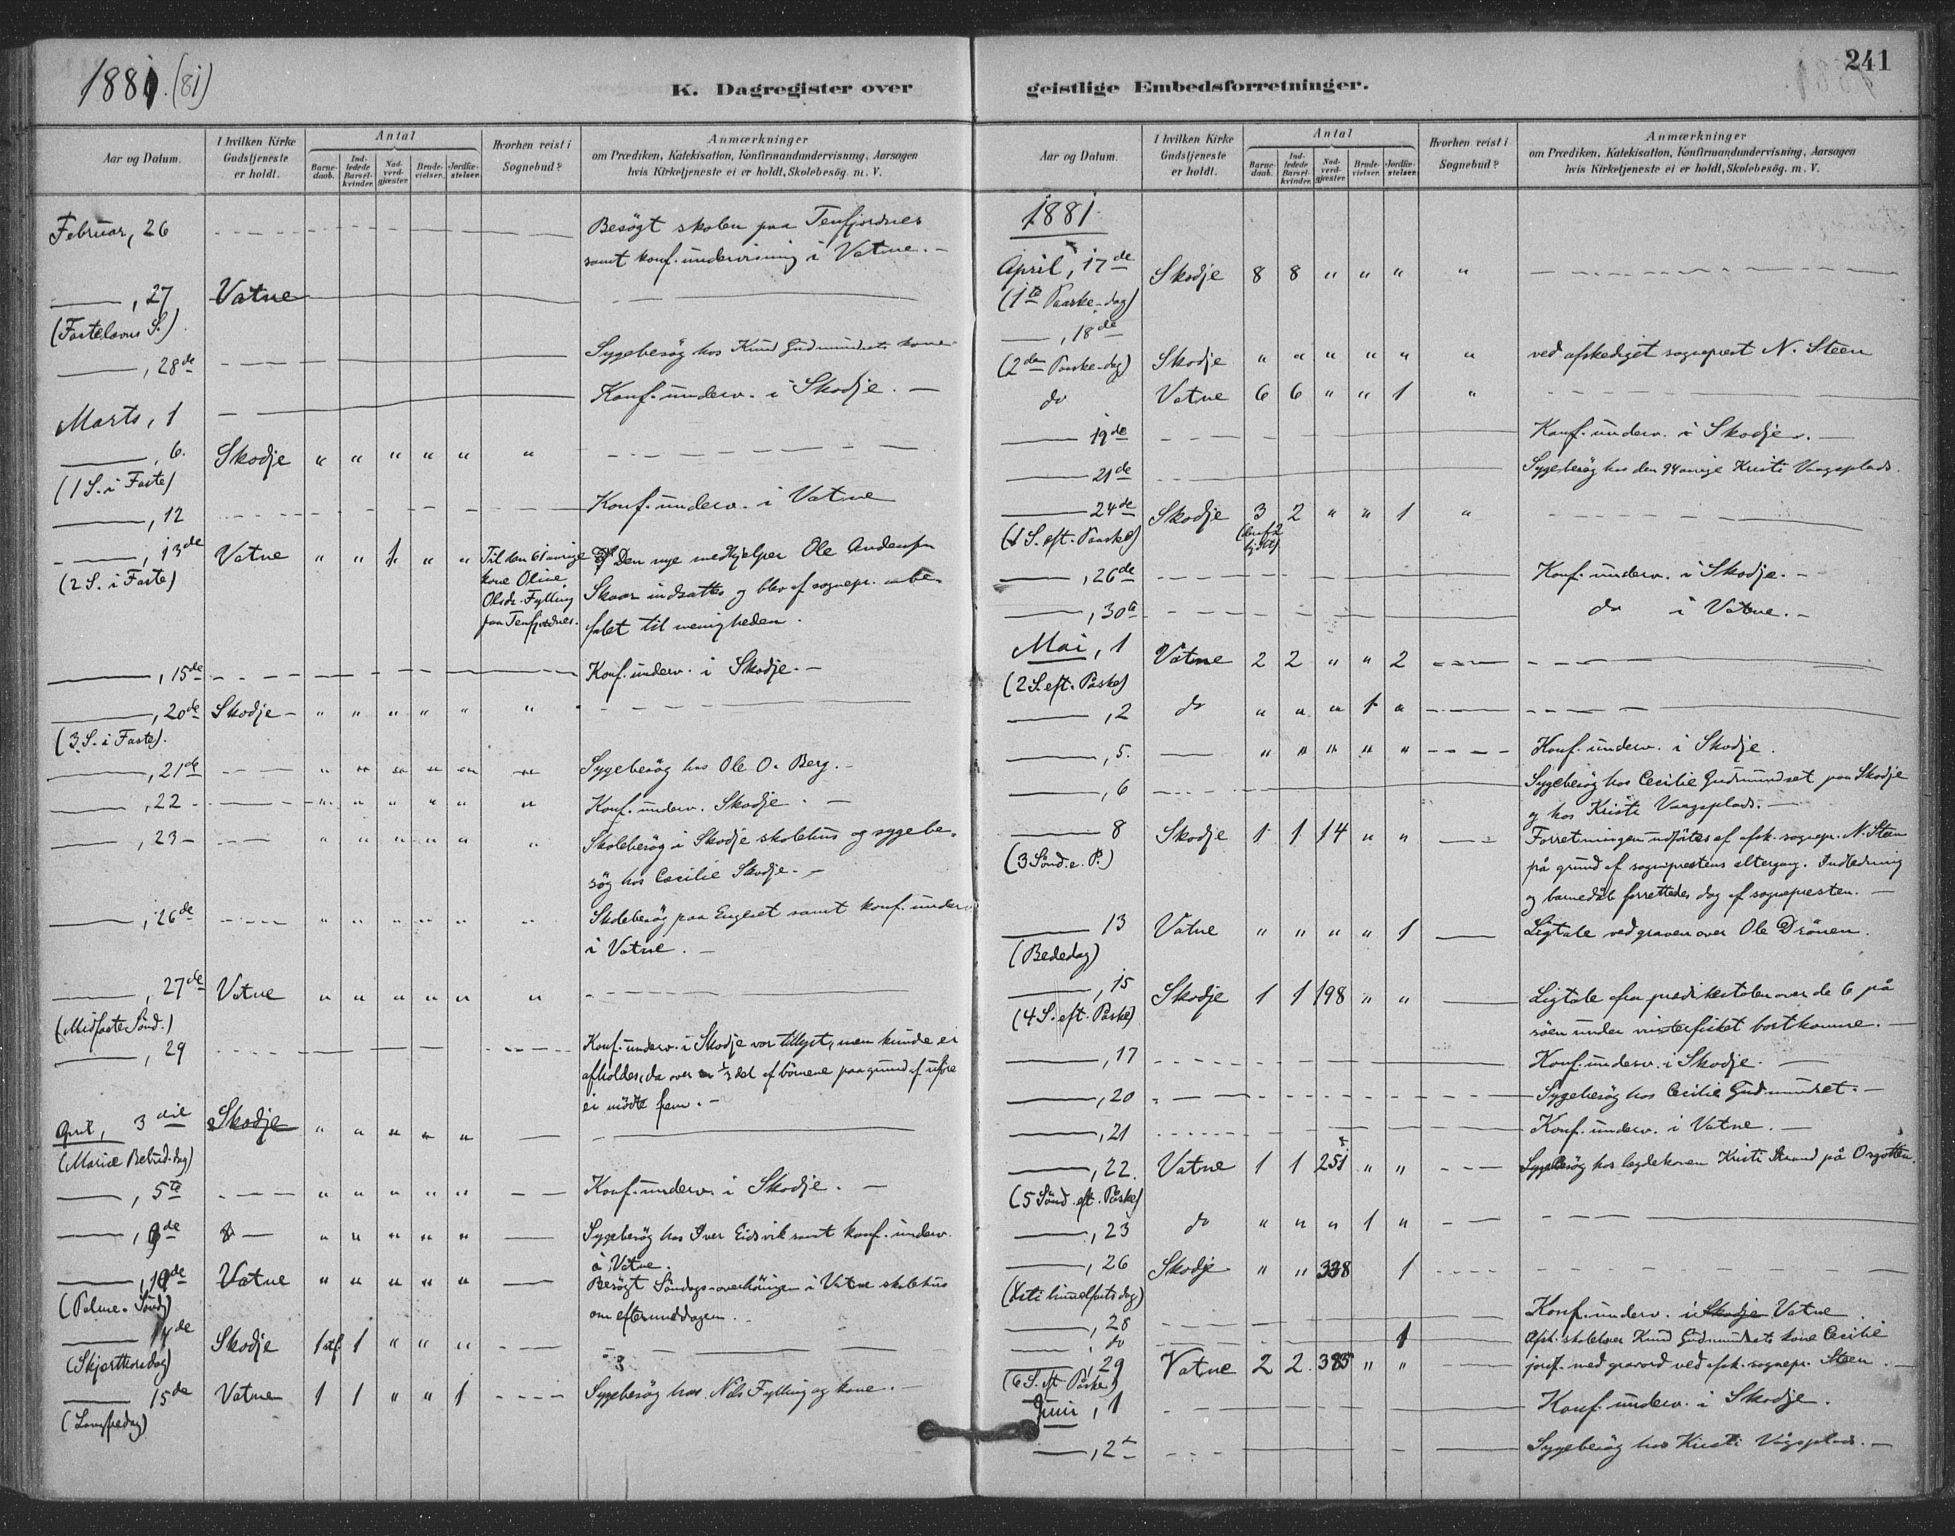 1881 (81)
K. Dagregister over
Aar og Datum.
I hvilken Kirke Gudstjeneste er holdt.
Antal
Barnedaab.
Indledede Barselkvinder.
Nadverdgjæster.
Brudevielser.
Jordfæstelser.
Hvorhen reist i Sognebud?
Anmærkninger
om Prædiken, Katekisation, Konfirmandundervisning, Aarsagen
hvis Kirketjeneste ei er holdt, Skolebesøg. m. V.
Februar, 26 Besøgt skolen paa Tenfjordnes
samt konf. undervisning i Vatne. —
—, 27 Vatne
(Fastelavns S.)
—, 28de Sygebesøg hos Knud Gudmundsets kone
Marts, 1 Konf. underv. i Skodje. —
—, 6. Skodje " " " " " "
(1 S. i Faste)
—, 12 Konf. underv. i Vatne
—, 13de Vatne " " 1 " " Til den 61 aarige Den nye medhjelper Ole Andersen
(2 S. i Faste) kone Oline Skaar indsattes og blev af sognepr. anbe-
Olsdr. Fylling
paa Tenfjordnes. falet til menigheden.
—, 15de Konf. underv. i Skodje. —
—, 20de Skodje — " " " " " "
(3 S. i Faste).
—, 21de " " " " " " Sygebesøg hos Ole O. Berg. —
—, 22 — " " " " " " Konf. underv. Skodje. —
—, 23 — " " " " " " Skolebesøg i Skodje skolehus og sygebe-
søg hos Cecilie Skodje. —
—, 26de " " " " " " Skolebesøg paa Engeset samt konf. underv.
i Vatne. —
—, 27de Vatne " " " " " "
(Midfaste Sønd.)
—, 29 Konf. underv. i Skodje var tillyst, men kunde ei
afholdes, da over 1/2 del af börnene paa grund af uföre
ei mödte frem. —
April, 3die Skodje " " " " " —
(Mariæ Bebud. dag)
—, 5te " " " " " Konf. underv. i Skodje. —
—, 9de " " " " " — Sygebesøg hos Iver Eidsvik samt konf. underv.
i Vatne.
—, 10de Vatne " " " " " — Besøgt Søndags-overhöringen i Vatne skolehus
(Palme-Sönd.) om eftermiddagen.
— 14de Skodje 1 1 " " "
(Skjærthorsdag)
— 15de Vatne 1 1 " " 1 Sygebesøg hos Nils Fylling og kone. —
(Langfredag)
241
geistlige Embedsforretninger.
Aar og Datum.
I hvilken Kirke Gudstjeneste er holdt.
Antal
Barnedaab.
Indledede Barselkvinder.
Nadverdgjæster.
Brudevielser.
Jordfæstelser.
Hvorhen reist i Sognebud?
Anmærkninger
om Prædiken, Katekisation, Konfirmandundervisning, Aarsagen
hvis Kirketjeneste ei er holdt, Skolebesøg. m. V.
1881.
April, 17de Skodje 8 8 " " " "
(1ste Paaske-dag)
—, 18de
(2den Paaske-dag) Skodje " " " " " " ved afskediget sogneprest N. Steen
do Vatne 6 6 " " 1 "
— 19de Konf. underv. i Skodje. —
— 21de Sygebesøg hos den 94 aarige Kristi Vaagsplads.
— 24de Skodje 3 2 " " 1 "
(1 S. eft. Paaske)
—, 26de Konf. underv. i Skodje. —
—, 30te do i Vatne. —
Mai, 1 Vatne 2 2 " " 2
(2 S. eft. Påske)
—, 2 do " " " 1 "
—, 5. — " " " " " Konf. underv. i Skodje.
—, 6 Sygebesøg hos Cecilie Gudmundset paa Skodje
og hos Kristi Vaagsplads. —
— 8 Skodje 1 1 14 " " Forretningen udførtes af afsk. sognepr. N. Steen
(3 Sönd. e. P.) på grund af sogneprestens altergang. Indledning
og barnedåb forrettedes dog af sognepresten. —
— 13 Vatne " " " " 1 — Ligtale ved graven over Ole Drönen.
(Bededag)
—, 15 Skodje 1 1 198 " " — Ligtale fra prædikestolen over de 6 på
(4 S. eft. Påske) söen under vinterfisket bortkomne. —
—, 17 Konf. underv. i Skodje. —
—, 20 Sygebesøg hos Cecilie Gudmundset. —
—, 21 Konf. underv. i Vatne. —
—, 22. Vatne 1 1 251 " " Sygebesøg hos Kristi Strand på
(5 Sönd. eft. Påske)
—, 23 do " " " 1 "
—, 26 Skodje " " 338 1
(Kristi himmelfartsdag)
—, 28 Konf. underv. i Skodje Vatne
—, do 1 Afsk. skolelær. Knud Gudmundsets kone Cecilie
—, 29 Vatne 2 2 385 " " jordf. med gravord ved afsk. sognepr. Steen. —
(6 S. eft. Påske)
Juni, 1 Konf. underv. i Skodje.
—, 2 Sygebesøg hos Kristi Vågsplads. —